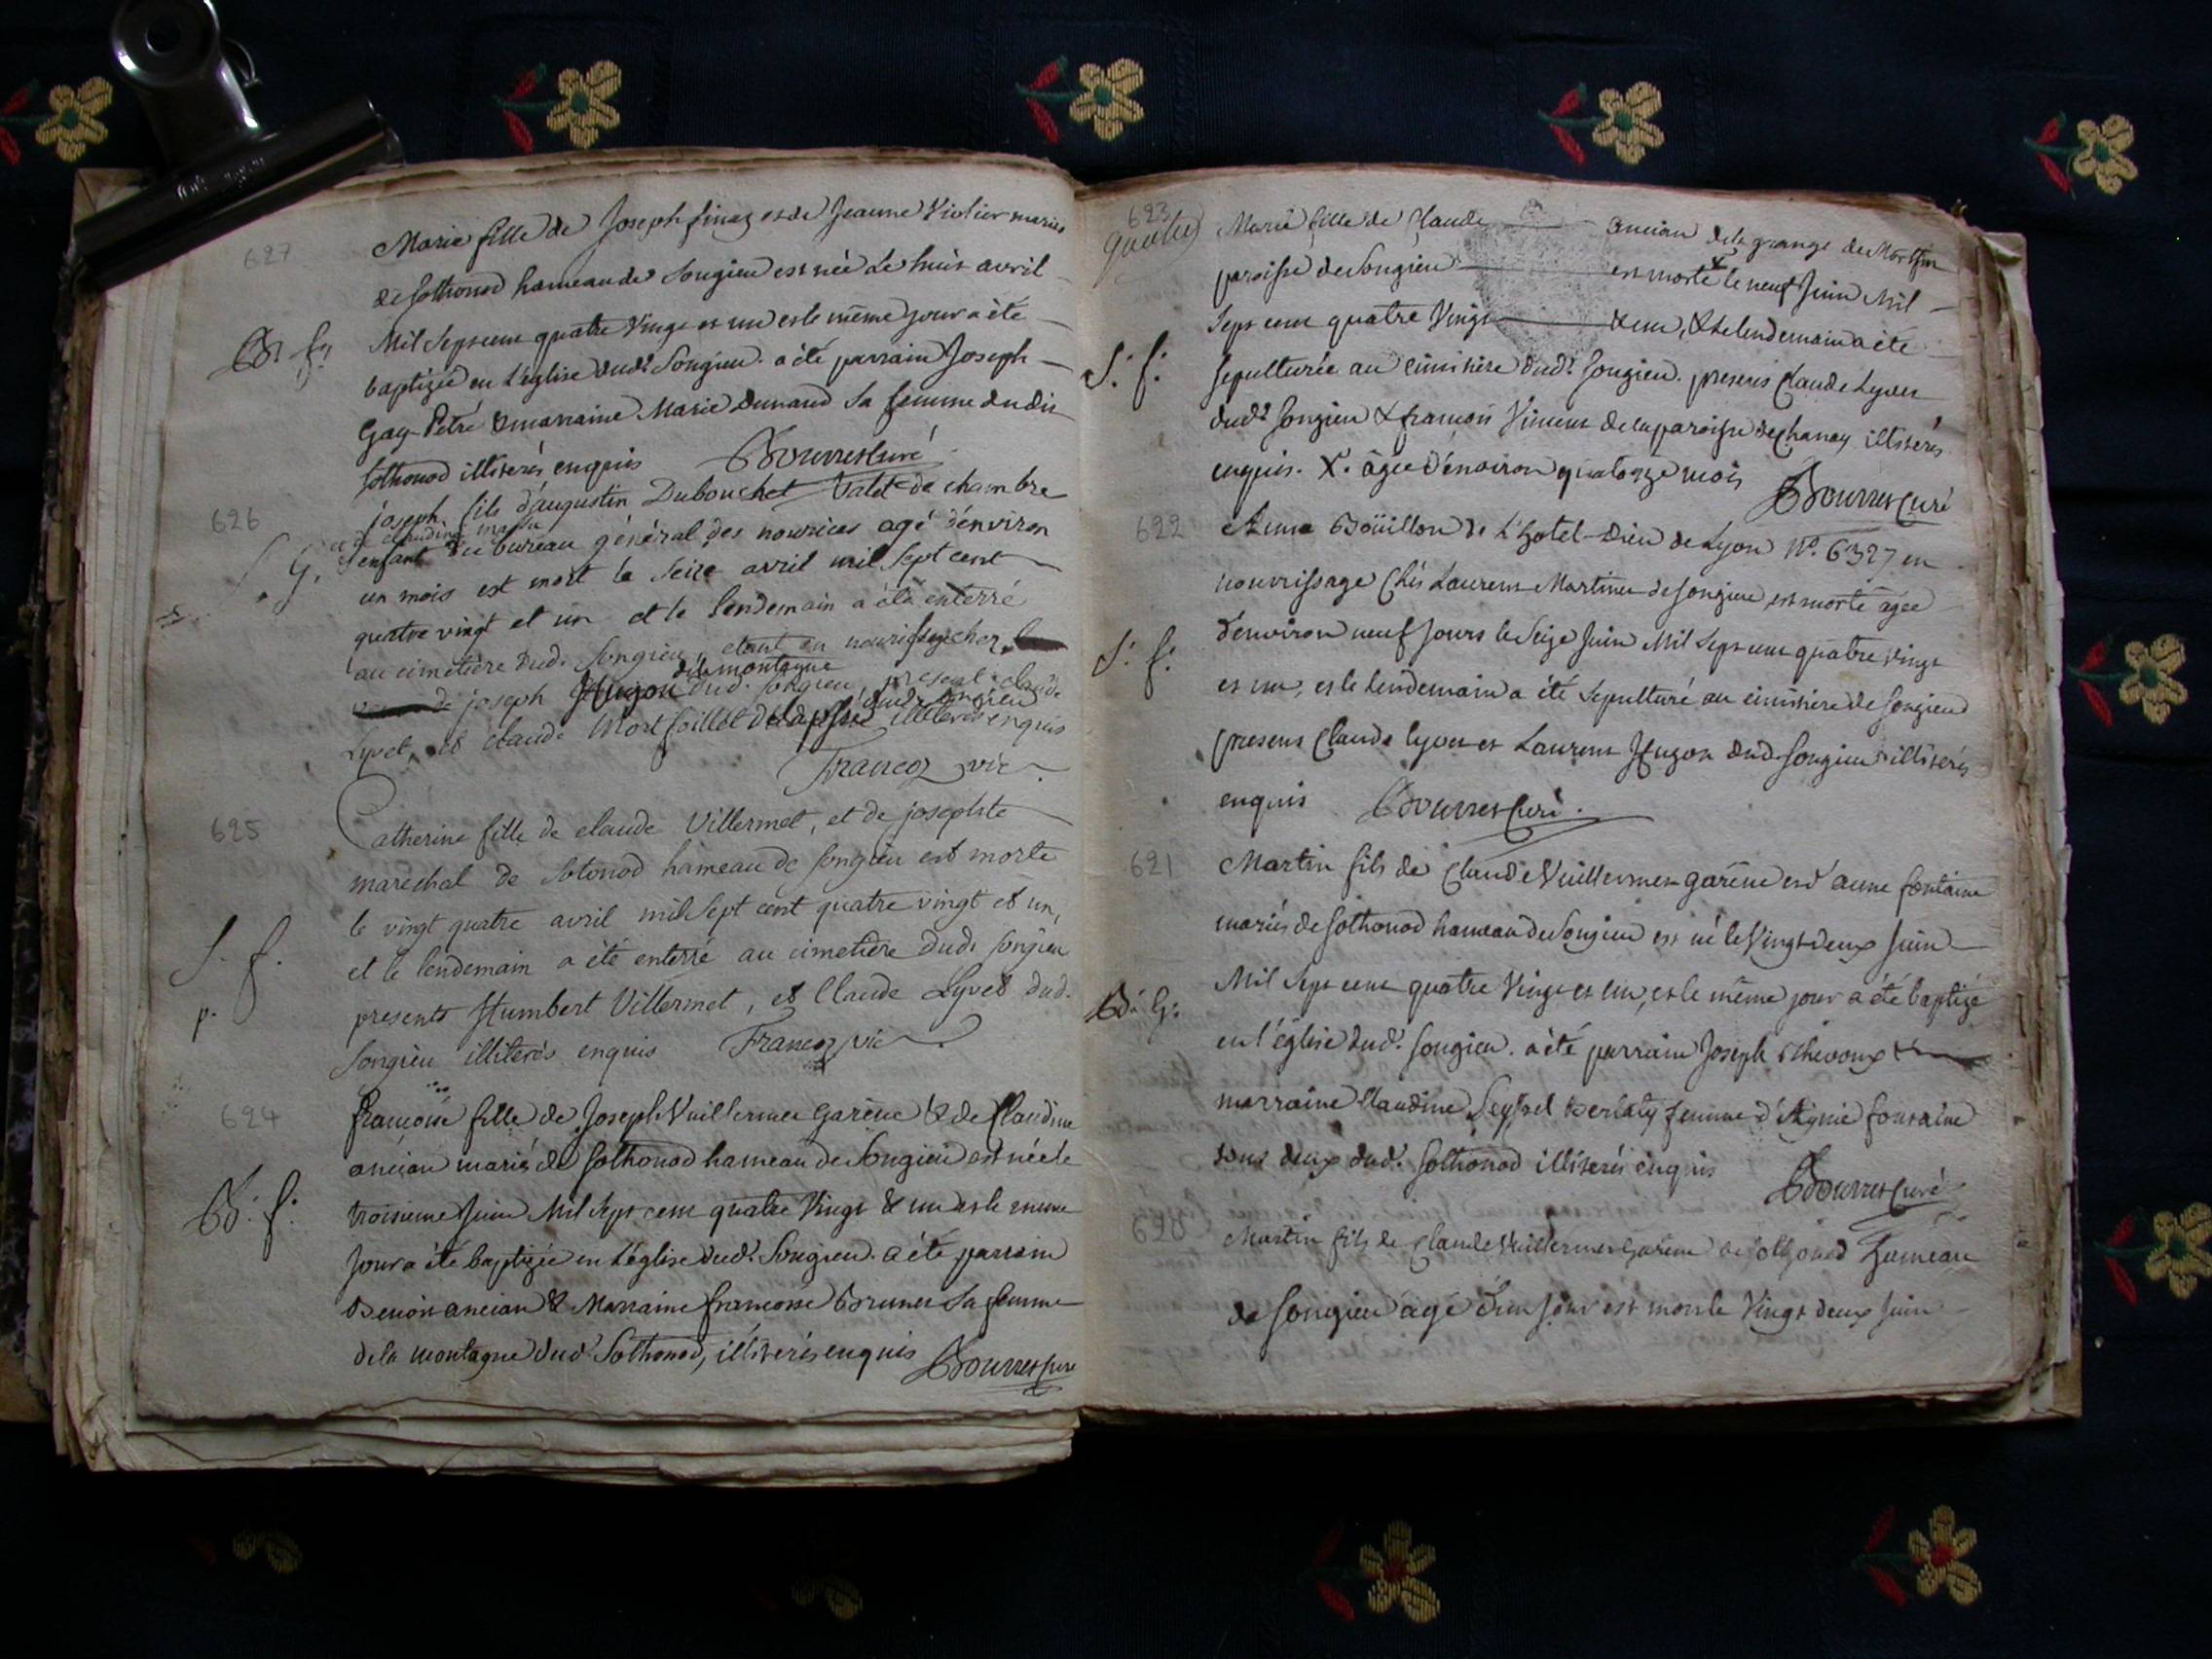 627
Marie fille de Joseph finaz et de Jeanne Violier mariés
de sothonod hameau de Songieu est née le huit avril
B. f.
Mil Sept cent quatre Vingt et un et le même jour a été
baptizée en L'église dud.t Songieu. a été parrain Joseph
Gay Petré & marraine Marie Dunand Sa femme dudit
Sothonod illiterés enquis Bourret Curé
626
joseph fils d'augustin Dubouchet Valet de chambre
et de claudine
S. G.
enfant du bureau général des nourices agé d'environ
un mois est mort le seize avril mil sept cent
quatre vingt et un et le lendemain a été enterré
au cimetière dud. Songieu, etant en nourissage chez
de joseph Hugon dud. Songieu present claude
de la montagne
Lyvet, et claude Mortfoillet illiterés enquis
dud. songieu
Francoz vic.
625
Catherine fille de claude Villermet, et de josephte
marechal de Sotonod hameau de songieu est morte
le vingt quatre avril mil Sept cent quatre vingt et un,
S. f.
et le lendemain a été enterré au cimetière dud. songieu
p.
presents Humbert Villermet, et Claude Lyvet dud.
Songieu illiterés enquis Francoz vic.
624
francoise fille de Joseph Vuillermet Garéne & de Claudine
ancian mariés de Sothonod hameau de Songieu est née le
B. f.
troisieme Juin Mil Sept cent quatre Vingt & un et le meme
Jour a été baptizée en L'église dud.t Songieu. a été parrain
Benoit ancian & Marraine francoise Brunet Sa femme
de la montagne dud.t Sothonod, illiterés enquis Bourret Curé
623
Marie fille de Claude ancian de la grange de
paroisse de Songieu x est morte le neuf Juin Mil
Sept cent quatre Vingt & un, & le lendemain a été
S. f.
sepulturée au cimitière dud.t Songieu. presens Claude Lyvet
dud.t Songieu & francois Vincent de la paroisse de chanay illiterés
enquis. X. âgée d'environ quatorze mois Bourret Curé
622
Anne Boüillon de L'hotel-Dieu de Lyon N°. 6327 en
nourrissage Chés Laurent Martinet de songieu est morte âgée
S. f.
d'environ neuf Jours le Seize Juin Mil Sept cent quatre Vingt
et un, et le lendemain a été Sepulturé au cimitière de Songieu
presens Claude Lyvet et Laurent Hugon dud. Songieu illiterés
enquis Bourret Curé.
621
Martin fils de Claude Vuillermet garéne et d'anne fontaine
mariés de Sothonod hameau de Songieu est né le Vingt deux Juin
B. G.
Mil Sept cent quatre Vingt et un, et le même jour a été baptizé
en l'église dud.t Songieu. a été parrain Joseph Thevoux &
marraine Claudine Seyssel femme d'Aynié fontaine
tous deux dud.t Sothonod illiterés enquis Bourret Curé
620
Martin fils de Claude Vuillermet Garéne de sothonod hameau
de Songieu âgé d'un jour est mort le Vingt deux Juin